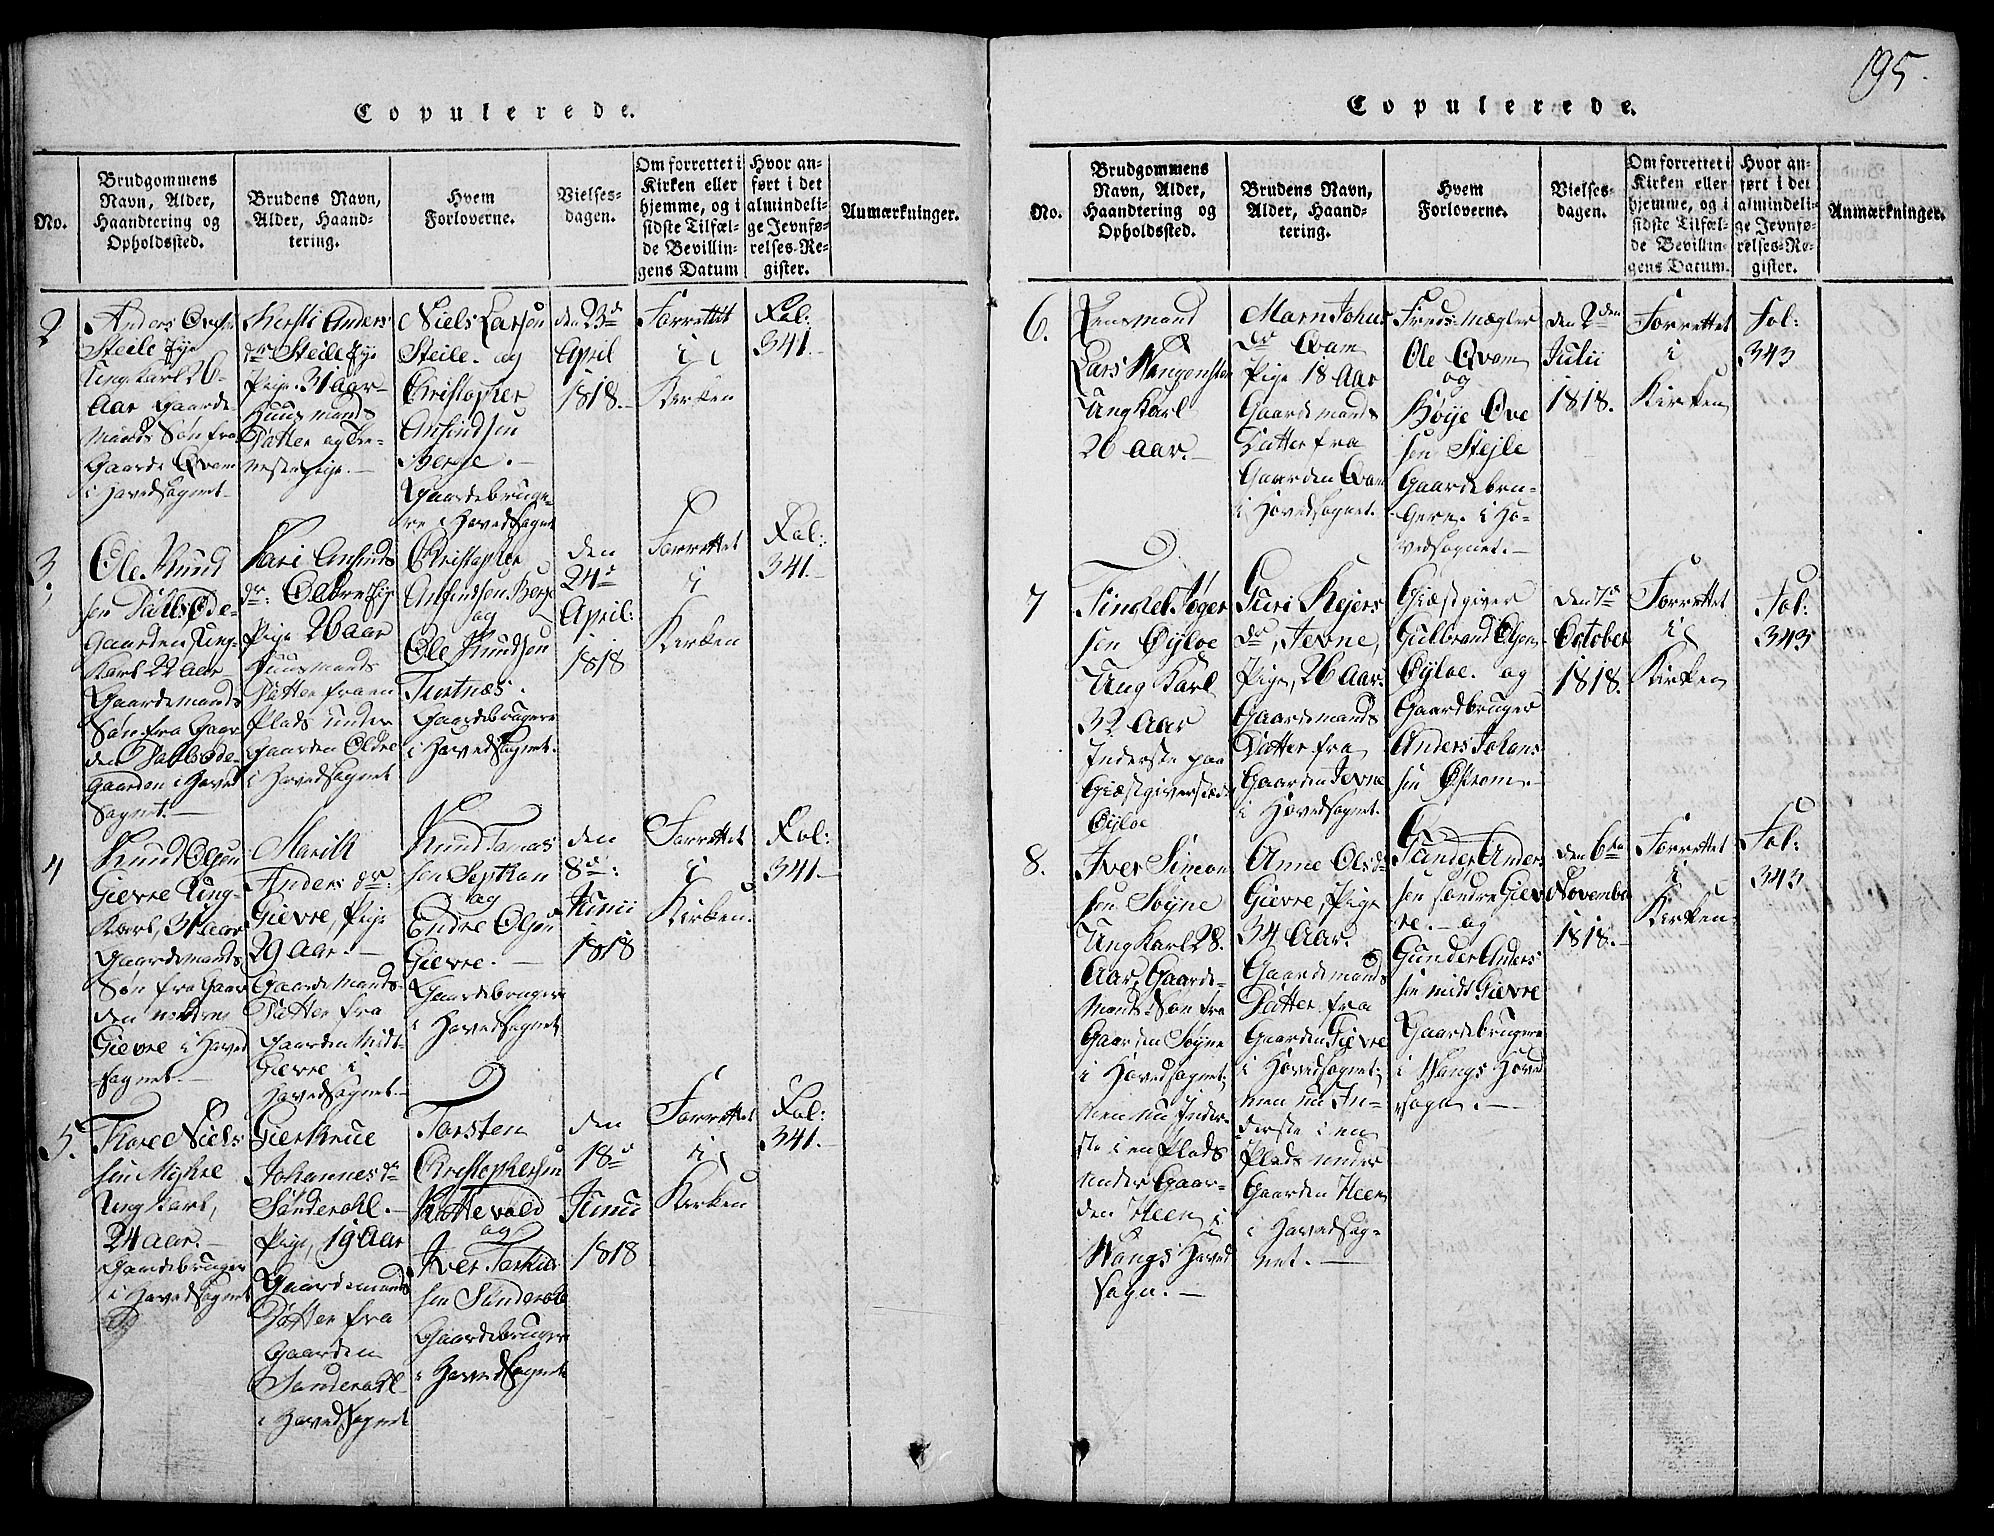 195.
Copulerede.
No.
Brudgommens
Navn, Alder,
Haandtering og
Opholdssted.
Brudens Navn,
Alder, Haand-
tering.
Hvem
Forloverne.
Vielses-
dagen.
Om forrettet i
Kirken eller
hjemme, og i
sidste Tilfæl-
de Bevillin-
gens Datum
Hvor an-
ført i det
almindeli-
ge Jevnfø-
relses-Re-
gister.
Anmærkninger.
2
Anders
Steile Eje
Ung Karl 26
Aar Gaard-
Mands Søn fra
Gaarde Qvam
i Hovedsognet
Kersti Anders
dr Steile Eje
Pige 31 Aar
Huusmands
Datter og Tie-
nestepige.
Niels Larsen
Steile. og
Christopher
Ansindsen
Berge.
Gaardebruge-
re i Hovedsognet
den 23de
April
1818.
Forrettet
i
Kirken
Fol:
341.
3.
Ole Knud
sen Dahlsøde-
Gaarden Ung-
Karl 22 Aar
Gaardemands
Søn fra Gaar
den Dahlsøde-
Gaarden i Hoved
Sognet.
Kari Ansinds
dr: Oldre Eje
Pige 26 Aar
Huusmands
Datter fra en
Plads under
Gaarden Oldre
i Hovedsognet
Christopher
Ansindsen Berge
og
Ole Knudsen
Tustnæs.
Gaardebrugere
i Hovedsognet.
den
24de
April:
1818
Forrettet
i
Kirken
Fol:
341.
4
Knud Olsen
Gievre Ung-
Karl, 31 Aar
Gaardemands
Søn fra Gaar
den nordre
Gievre i Hoved
sognet.
Marith
Anders dr:
Gievre, Pige
29 Aar.
Gaardemands-
Datter fra
Gaarden Midt-
Gievre i
Hovedsognet.
Knud Tomas
sen
og
Endre Olsen
Gievre.
Gaardebrugere
i Hovedsognet
den
8de:
Junii
1818
Forrettet
i
Kirken.
Fol:
341.
5.
Thore Niels
sen Myhre
Ung Karl,
24 Aar.
Gaardebruger
i Hovedsognet
Giertrue
Johannes dr
Sønderohl.
Pige, 19 Aar
Gaardemands
Datter fra
Gaarden
Sønderohl
i Hovedsognet
Torsten
Christophersen
Kattevold
og
Iver
sen Sønderohl
Gaardebrugere
i Hovedsognet
den
18de
Junii
1818
Forrettet
i
Kirken
Fol:
341.
Copulerede.
No.
Brudgommens
Navn, Alder,
Haandtering og
Opholdssted.
Brudens Navn,
Alder, Haand-
tering.
Hvem
Forloverne.
Vielses-
dagen.
Om forrettet i
Kirken eller
hjemme, og i
sidste Tilfæl-
de Bevillin-
gens Datum.
Hvor an-
ført i det
almindeli-
ge Jevnfø-
relses-Re-
gister.
Anmærkninger.
6.
Lensmand
Lars Wangensten
Ung Karl
26 Aar.
Marn Johns
dr Qvam
Pige 18 Aar
Gaardemands
Datter fra
Gaarden Qvam
i Hovedsognet.
Freds-mægler
Ole Qvam
og
Bøije Ove
sen Stejle
Gaardebru-
gere. i Ho-
vedsognet.
den 2den
Julii
1818.
Forrettet
i
Kirken
Fol:
343
7
Tindel Aager
sen Øyloe
Ung Karl
32 Aar
Inderste paa
Giæstgiverstæd
Øyloe
Guri Rejers
dr, Jevne,
Pige, 26 Aar.
Gaardemands
Datter fra
Gaarden Jevne
i Hovedsognet.
Giæstgiver
Gulbrand Olsen
Øyloe. og
Gaardbruger
Anders Johans
sen Østrom
den 7de
October
1818.
Forrettet
i
Kirken
Fol:
343
8.
Iver Simon
sen Søyne
Ung Karl 28.
Aar, Gaarde-
Mands Søn fra
Gaarden Søyne
i Hovedsognet,
men nu Inder
ste i en Plads
under Gaar-
den Heen i
Wangs Hoved
Sogn.
Anne Olsdr
Gievre, Pige
34 Aar.
Gaardemands
Datter fra
Gaarden Gievre
i Hovedsognet,
men nu In-
derste i en
Plads under
Gaarden Heen
i Hovedsog-
net.
Gunder Anders
sen søndre Giev
re. og
Gunder Anders
sen midt Gievre
Gaardebrugere
i Wangs Hoved
sogn.
den 6te
November
1818.
Forrettet
i
Kirken
Fol:
343